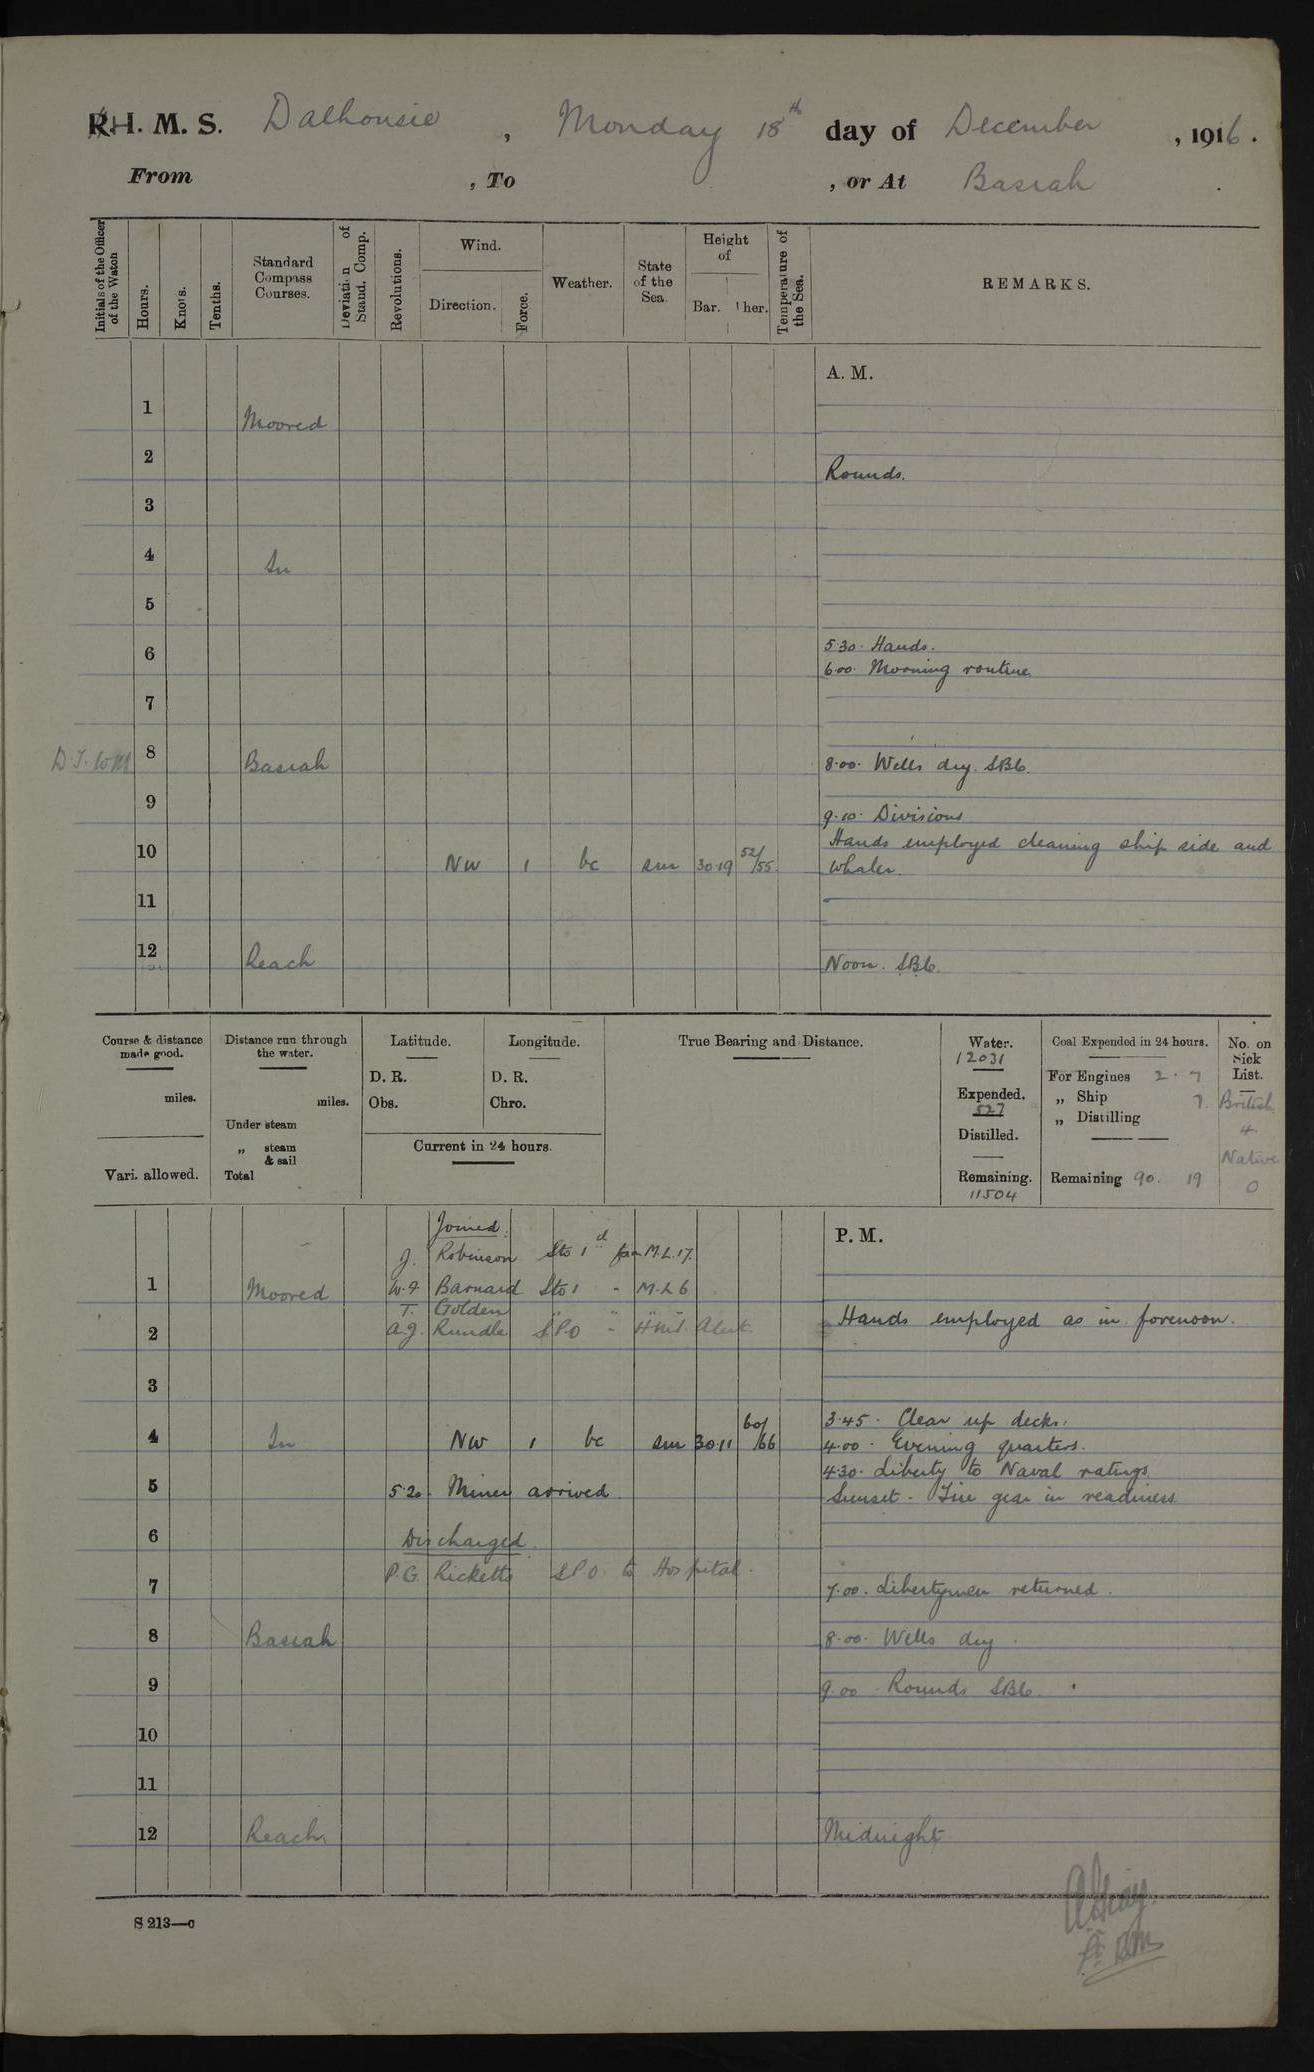 R.H. M. S. Dalhousie , Monday 18th day of December , 1916.
From , To , or At Basrah .
Initials of the Officer of the Watch
Hours.
Knots.
Tenths.
Standard Compass Courses.
Deviation of Stand. Comp.
Revolutions.
Wind.
Direction.
Force.
Weather.
State of the Sea
Height of
Bar. Ther.
Temperature of the Sea.
REMARKS.
A. M.
1 Moored
2 Rounds.
3
4 In
5
5.30. Hands.
6 6.00. Morning routine.
7
D.J. WM 8 Basrah 8.00. Wells dry. SBC.
9 9.10. Divisions
Hands employed cleaning ship side and
10 NW 1 bc sm 30.19 52/55 whaler.
11
12 Reach Noon. SBC.
Course & distance made good.
miles.
Vari. allowed.
Distance run through the water.
miles.
Under steam
„ steam & sail
Total
Latitude.
D. R.
Obs.
Longitude.
D. R.
Chro.
Current in 24 hours.
True Bearing and Distance.
Water.
12031
Expended.
527
Distilled.
Remaining.
11504
Coal Expended in 24 hours.
For Engines 2 . 7
„ Ship 7.
„ Distilling
Remaining 90. 19
No. on Sick List.
British
4
Native
0
P. M.
Joined.
J. Robinson Sto 1st from M.L.17.
1 Moored W.F. Barnard Sto 1 - M.L 6
T. Golden " " " "
2 A.J. Rundle SPO - HMS Alert. Hands employed as in forenoon.
3
3.45. Clear up decks.
4 In NW 1 bc sm 30.11 60/66 4.00. Evening quarters.
4.30. Liberty to Naval ratings.
5 5.20. Miner arrived Sunset - Fire gear in readiness
6 Discharged.
P.G. Ricketts SPO to Hospital.
7 7.00. Libertymen returned.
8 Basrah 8.00. Wells dry.
9 9.00. Rounds SBC.
10
11
12 Reach Midnight
S 213—c